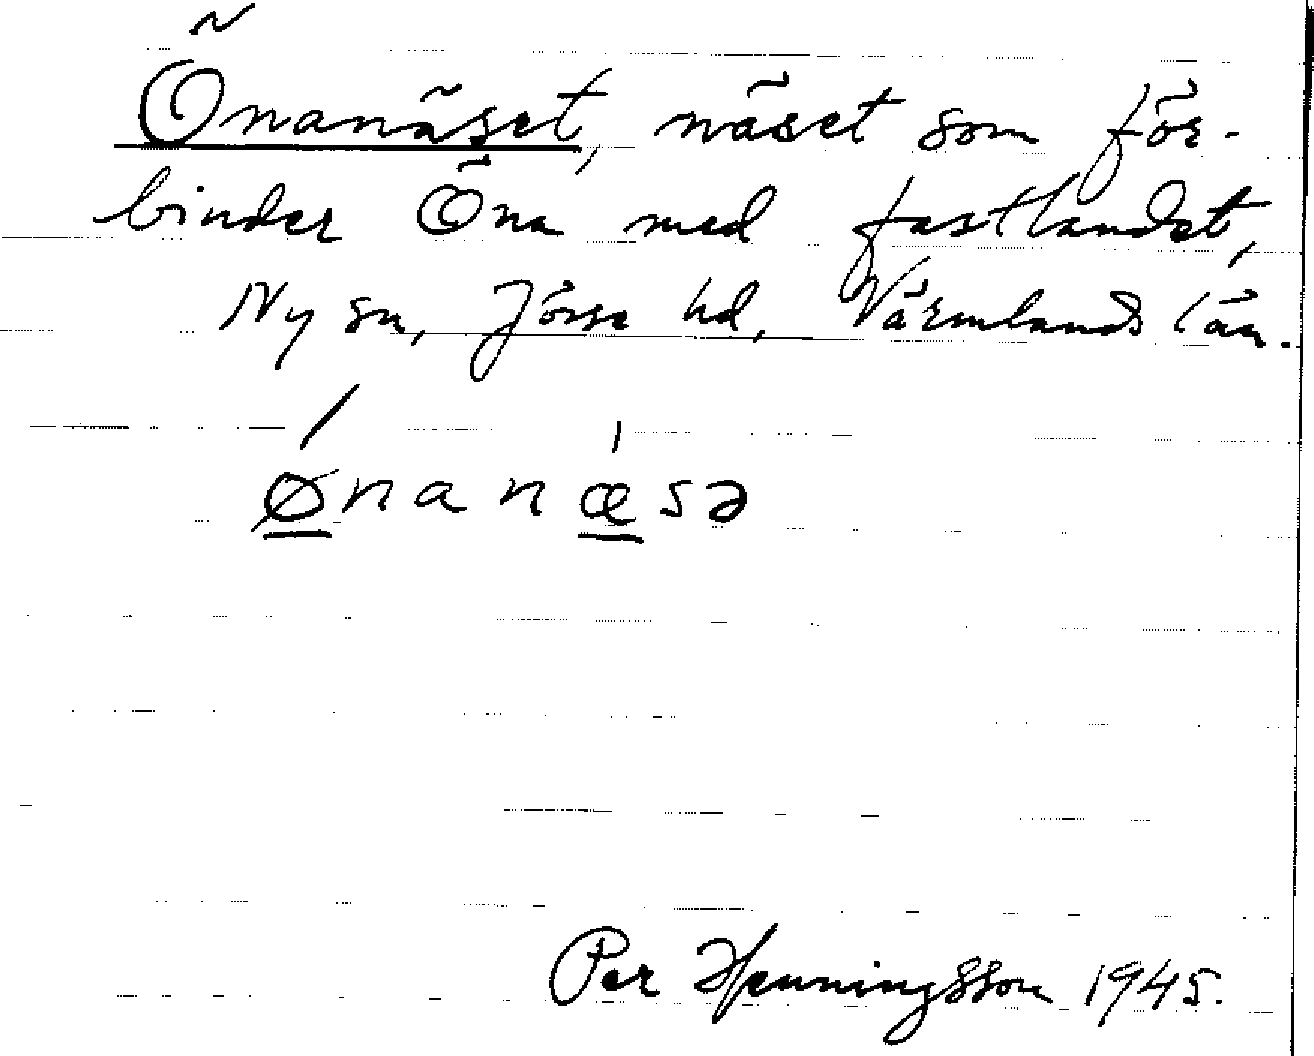 Önanäset, näset som för-
binder Öna med fastlandet,
Ny sn, Jösse hd, Värmlands län.
ǿnanæ̀sə
Per Henningsson 1945.